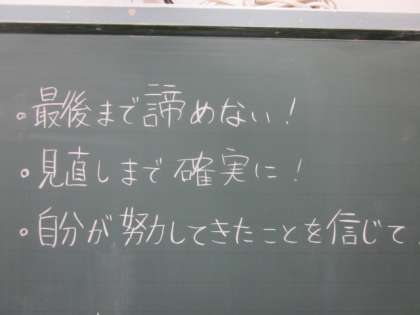 。最後まで諦めない！
。見直しまで確実に！
。自分が努力してきたことを信じて